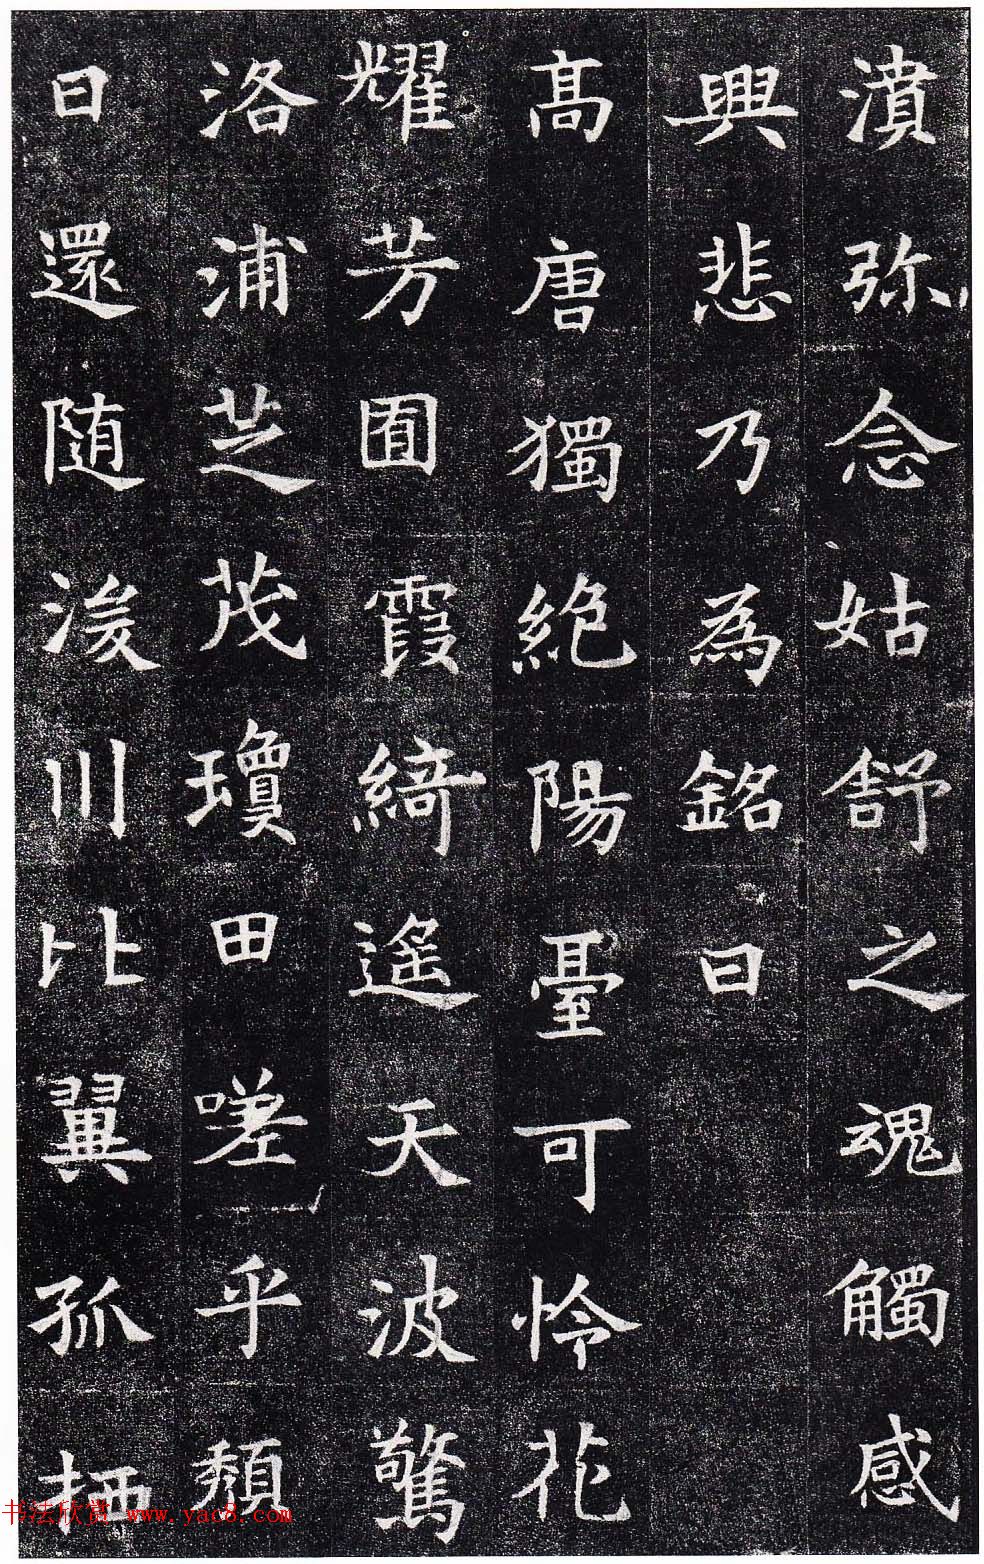 濆弥念姑舒之魂觸感
興悲乃為銘曰
髙唐獨絶陽臺可怜花
耀芳囿霞綺遙天波驚
洛浦芝茂瓊田嗟乎頹
日還随浚川比翼孤
栖
书法欣赏 www.yac8.com